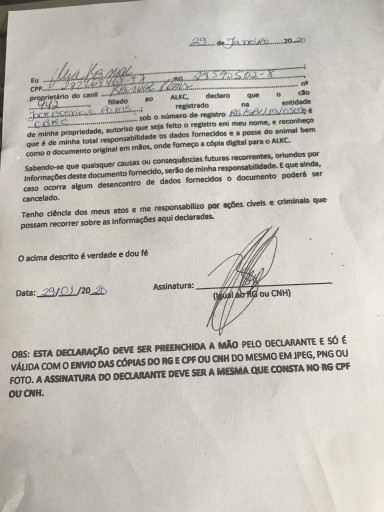 29 de Janeiro 20 20
Eu
CPF RG 28592502-8
proprietário do canil
nº
442 filiado ao ALKC, declaro que o cão
registrado na entidade
CBKC sob o número de registro é
de minha propriedade, autorizo que seja feito o registro em meu nome, e reconheço
que é de minha total responsabilidade os dados fornecidos e a posse do animal bem
como o documento original em mãos, onde forneço a cópia digital para o ALKC.
Sabendo-se que quaisquer causas ou consequências futuras recorrentes, oriundos por
informações deste documento fornecido, serão de minha responsabilidade. E que ainda,
caso ocorra algum desencontro de dados fornecidos o documento poderá ser
cancelado.
Tenho ciência dos meus atos e me responsabilizo por ações cíveis e criminais que
possam recorrer sobre as informações aqui declaradas.
O acima descrito é verdade e dou fé
Data: 29/01/2020 Assinatura:
(Igual ao RG ou CNH)
OBS: ESTA DECLARAÇÃO DEVE SER PREENCHIDA A MÃO PELO DECLARANTE E SÓ É
VÁLIDA COM O ENVIO DAS CÓPIAS DO RG E CPF OU CNH DO MESMO EM JPEG, PNG OU
FOTO. A ASSINATURA DO DECLARANTE DEVE SER A MESMA QUE CONSTA NO RG CPF
OU CNH.